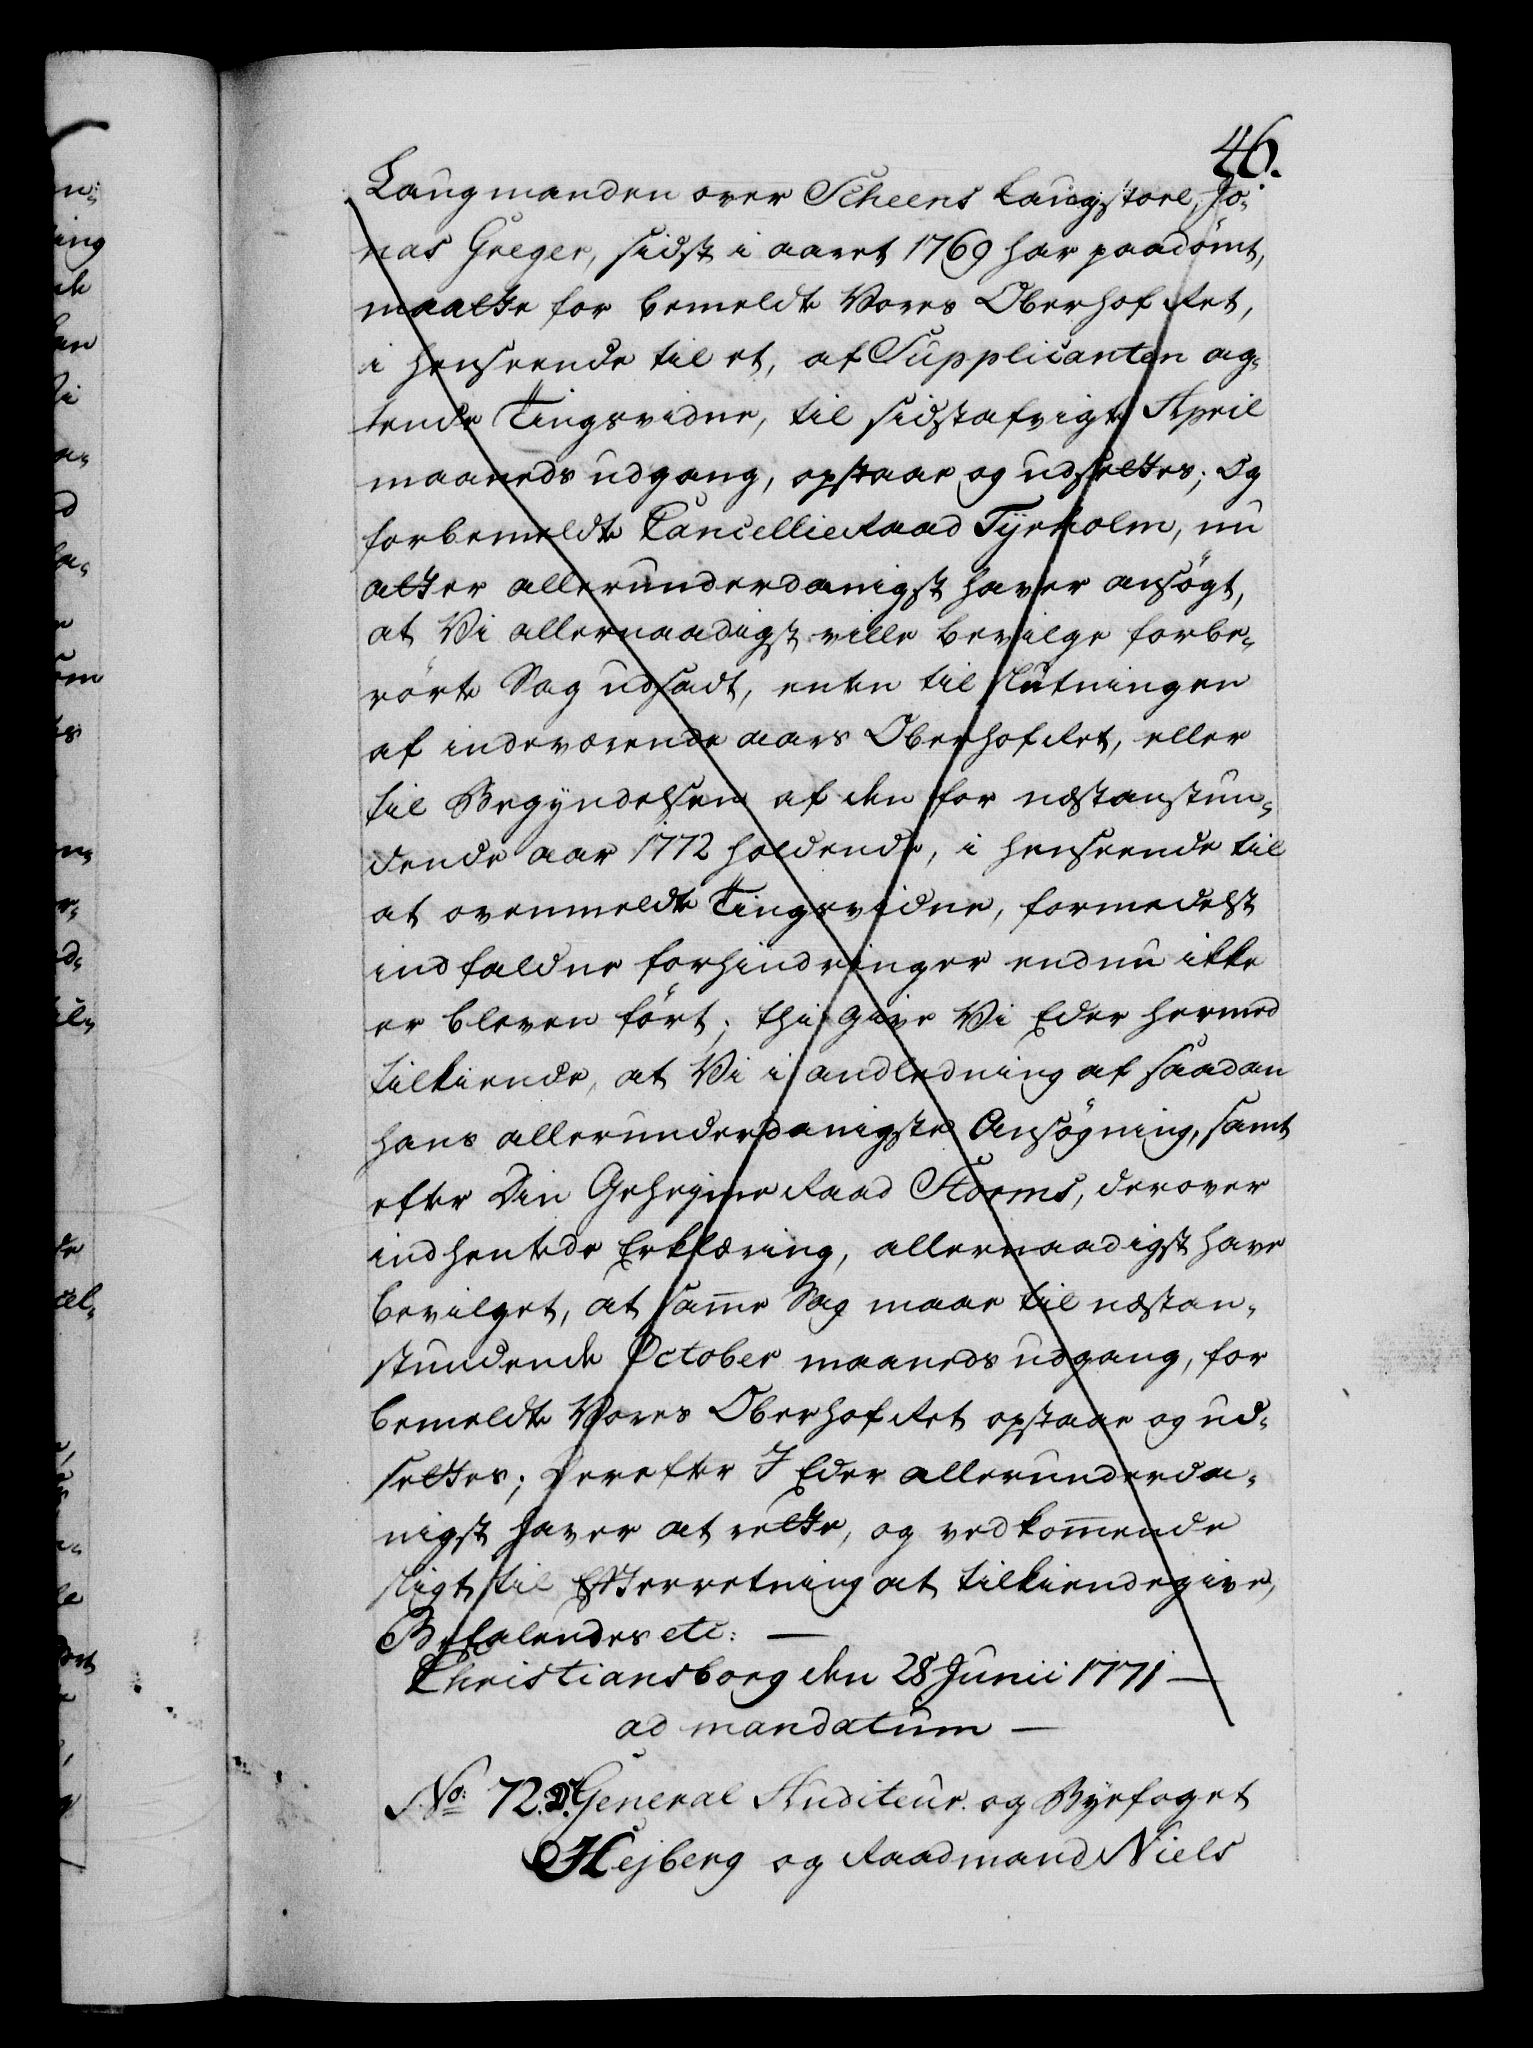 46.
Laugmanden over Scheens Laugstoel, Jo-
nas Greger, sidst i aaret 1769 har paadömt,
maatte for bemeldte Vores OberhofRet,
i henseende til et, af Supplicanten ag-
tende Tingsvidne, til sidstafvigte April
maaneds udgang, opstaae og udsættes; Og
forbemeldte CancellieRaad Tyrholm, nu
atter allerunderdanigst haver ansögt,
at Vi allernaadigst ville bevilge forbe-
rörte Sag udsadt, enten til Slutningen
af indeværende aars OberhofRet, eller
til Begyndelsen af den for næstanstun-
dende aar 1772 holdende, i henseende til
at ovenmeldte Tingsvidne, formedelst
indfaldne forhindringer endnu ikke
er bleven fört; thi give Vi Eder hermed
tilkiende, at Vi i andledning af saadan
hans allerunderdanigste Ansögning, samt
efter Din GehejmeRaad Storms, derover
indhentede Erklæring, allernaadigst have
bevilget, at samme Sag maae til næstan-
stundende October maaneds udgang, for
bemeldte Vores OberhofRet opstaae og ud-
settes; Derefter I Eder allerunderda-
nigst haver at rette, og vedkommende
sligt til Efterretning at tilkiendegive,
Befalendes etc: —
Christiansborg den 28 Junii 1771 —
ad mandatum —
No: 72. General Auditeur og Byefoget
Hejberg og Raadmand Niels